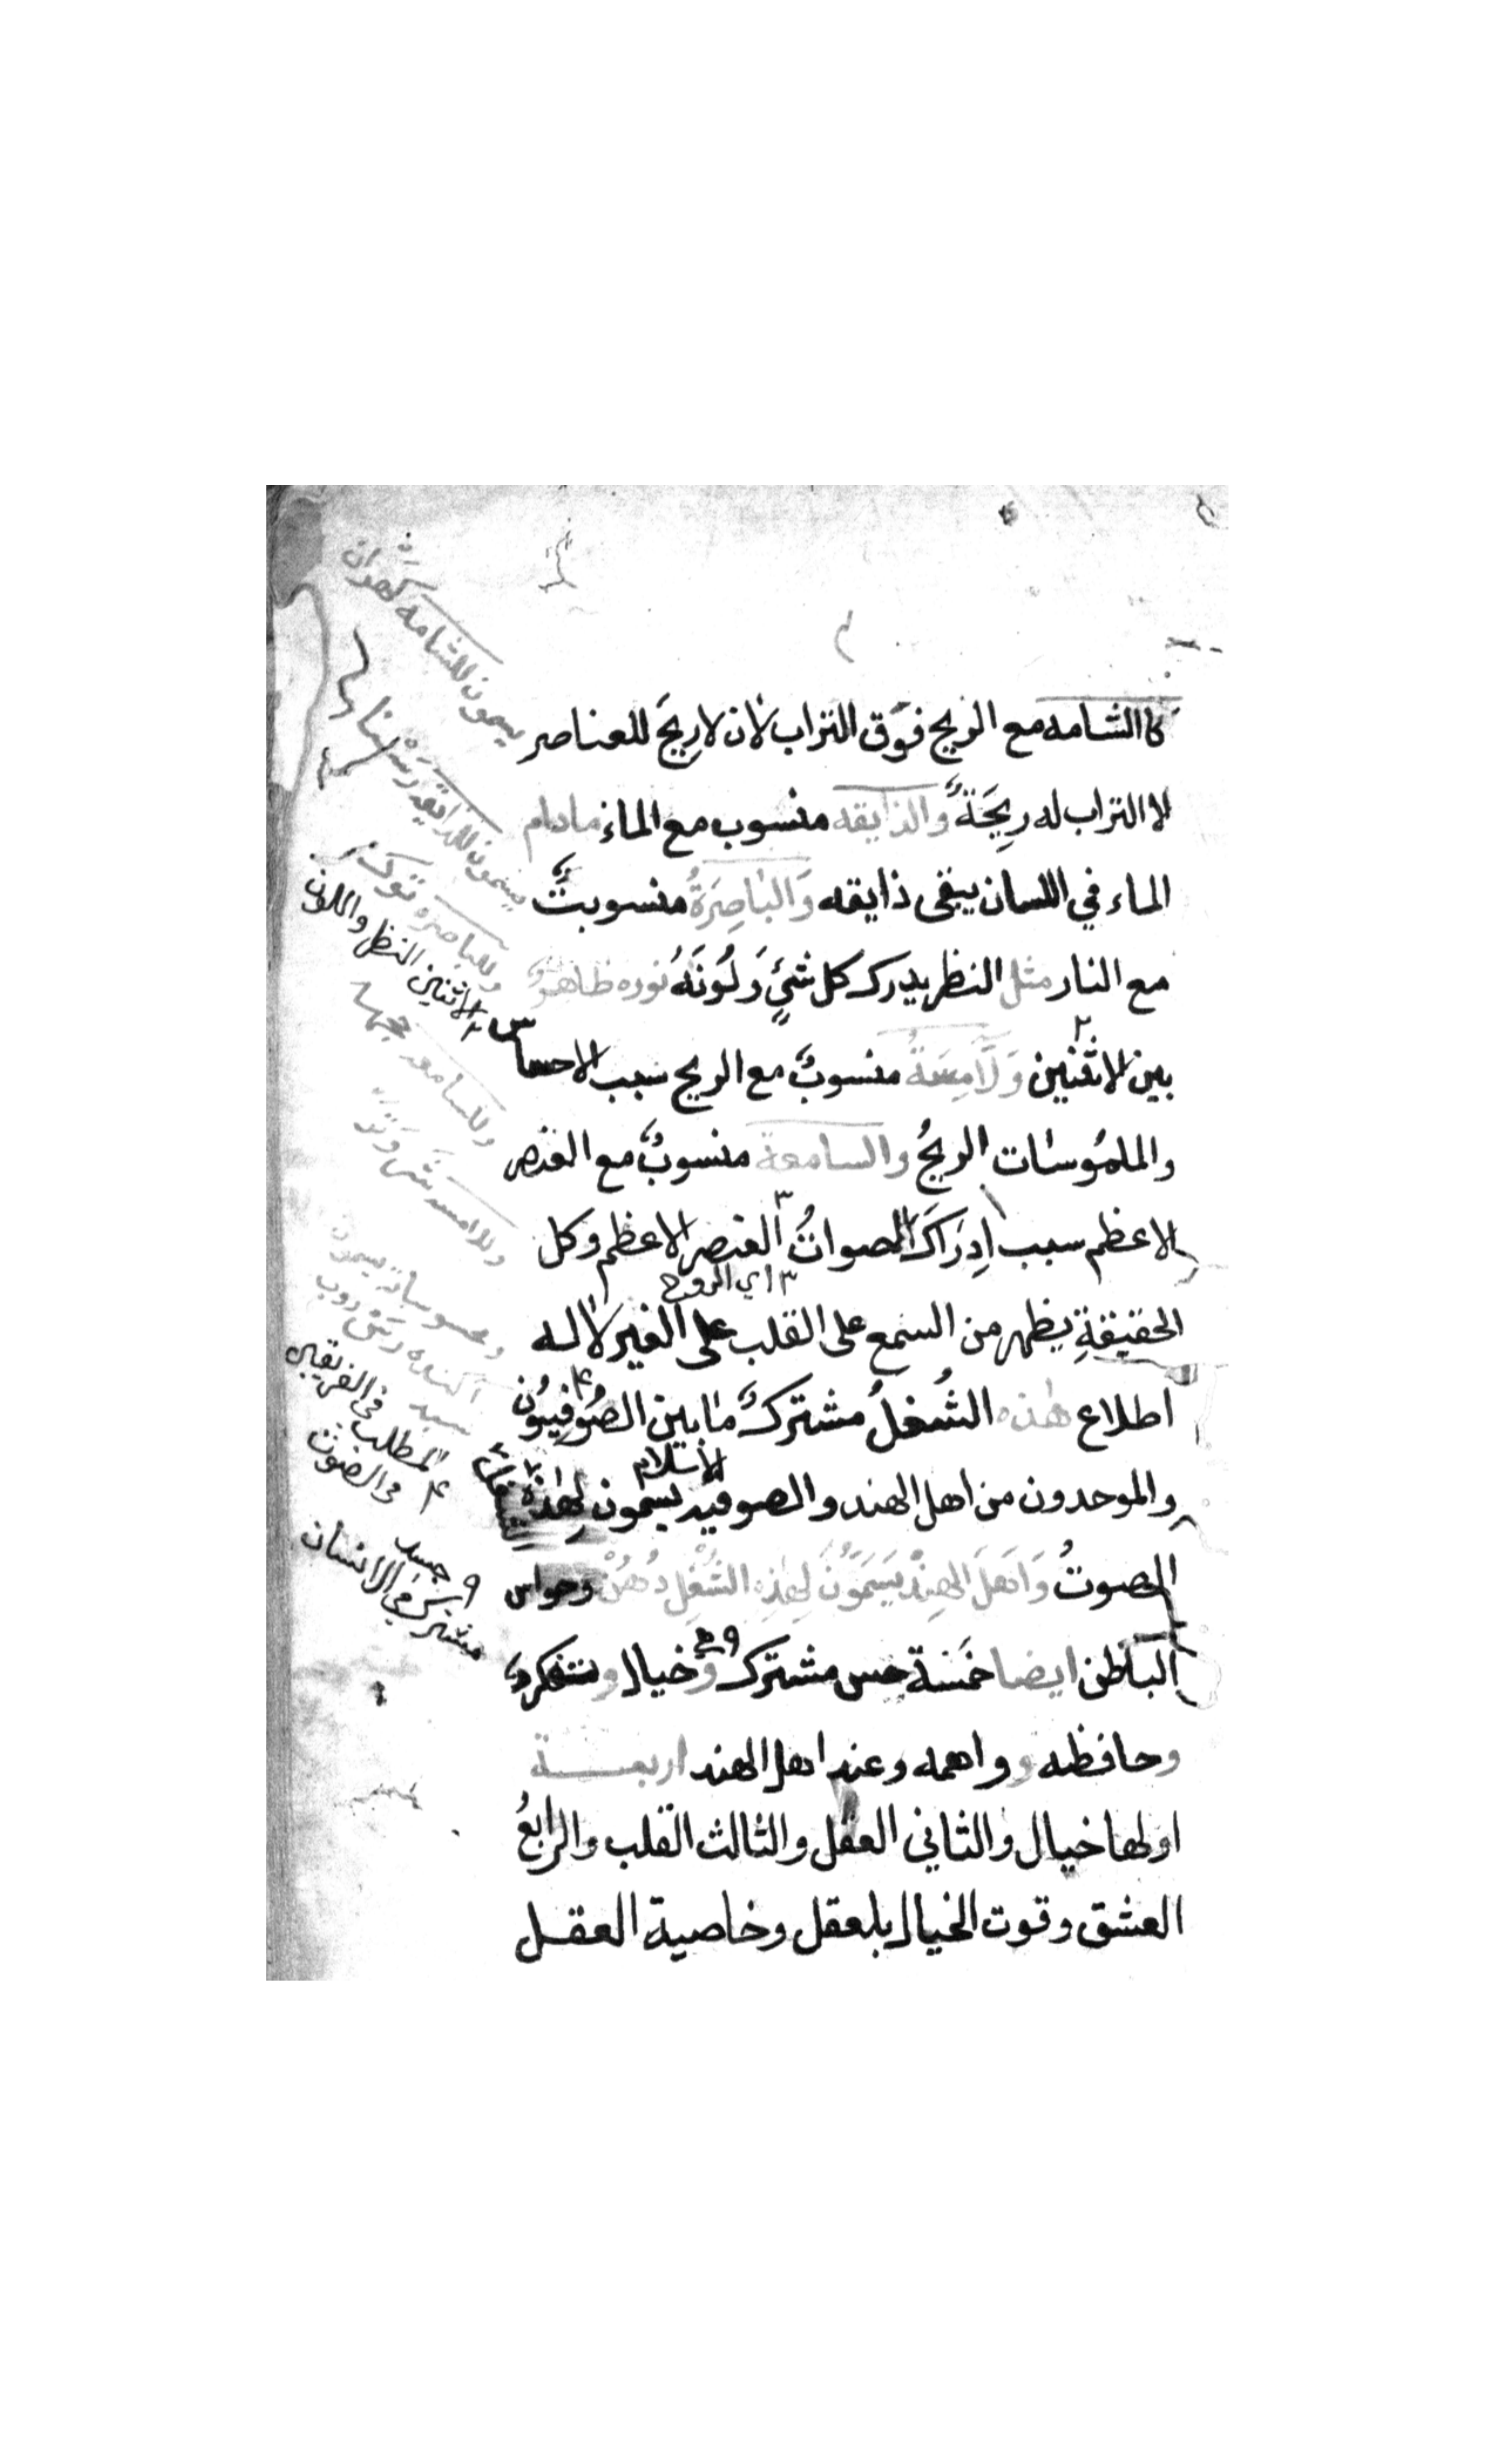 كا الشامه مع الريح فوق التراب لان لا ريحَ للعناصر
لا التراب له ريحَةٌ والذايقه منسوب مع الماء مادام
الماء في اللسان يبقى ذايقه وَالبَاصِرَةُ منسوبتٌ
مع النار مثل النظر يدرك كل شئٍ وَلَونَهُ نوره ظاهرٌ
بين لاثنين وَلَامِسَةُ منسوبٌ مع الريح سبب الاحساس
والملموُسات الريحُ والسامعة منسوبٌ مع العنصر
الاعظم سبب اِدرَاكَ الصواتُ العنصر الاعظم وكل
٣ اي الروح
الحقيقةِ يظهر من السمع على القلب على الغير لا له
اطلاع هذه الشُغلُ مشتركٌ مابين الصُوفِيوُن
والموحدون من اهل الهند والصوفيه يسمون لِهذه
الاسلام
الصوتُ وَاَهلَ الهِندْ يَسَمَوُّنَ لِهَذِه الشُّغْلِ دُهُنْ وحواس
الباطن ايضا خمَسَة حس مشترك وخيال ومتفكره
وحافظه وواهمه وعند اهل الهند اربعـة
اولها خيال والثاني العقل والثالث القلب والرابعُ
العشق وقوت الخيال بلعقل وخاصية العقـل
يسمون للشامه كهران
يسمون للذايقه رسنا
وللباصره
٢ الاثنين النظر واللون
وللسامعه
وللامسه
ومحسوساته يسمون
٤ المطلب في الفريقين
في الصوت
٩ جسد
مشترك في الانسان